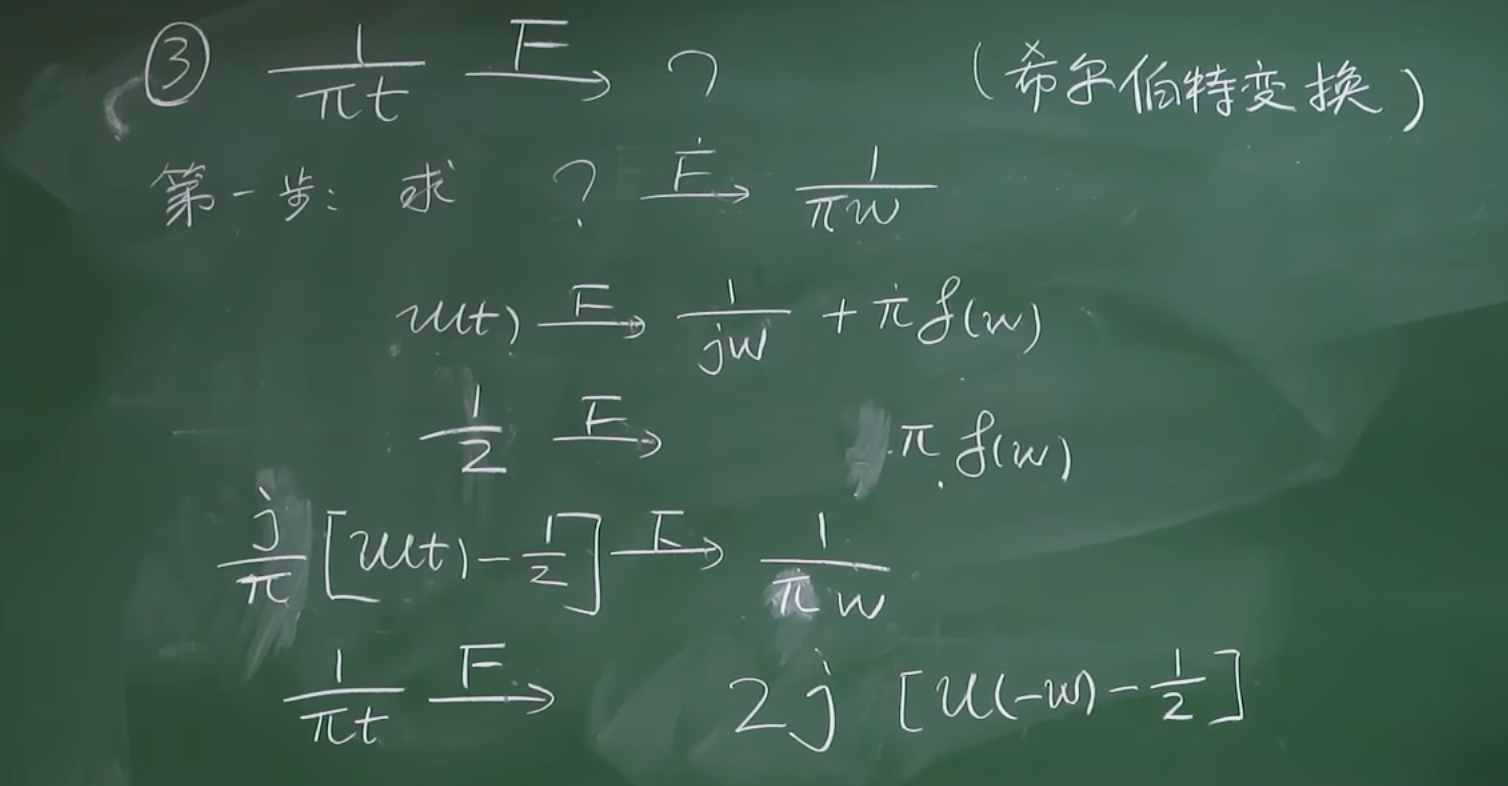 ③ \frac{1}{πt} \xrightarrow{F} ? (希尔伯特变换)
第一步: 求 ? \xrightarrow{F} \frac{1}{πw}
u(t) \xrightarrow{F} \frac{1}{jw} + πδ(w)
\frac{1}{2} \xrightarrow{F} πδ(w)
\frac{j}{π}[u(t) - \frac{1}{2}] \xrightarrow{F} \frac{1}{πw}
\frac{1}{πt} \xrightarrow{F} 2j [u(-w) - \frac{1}{2}]